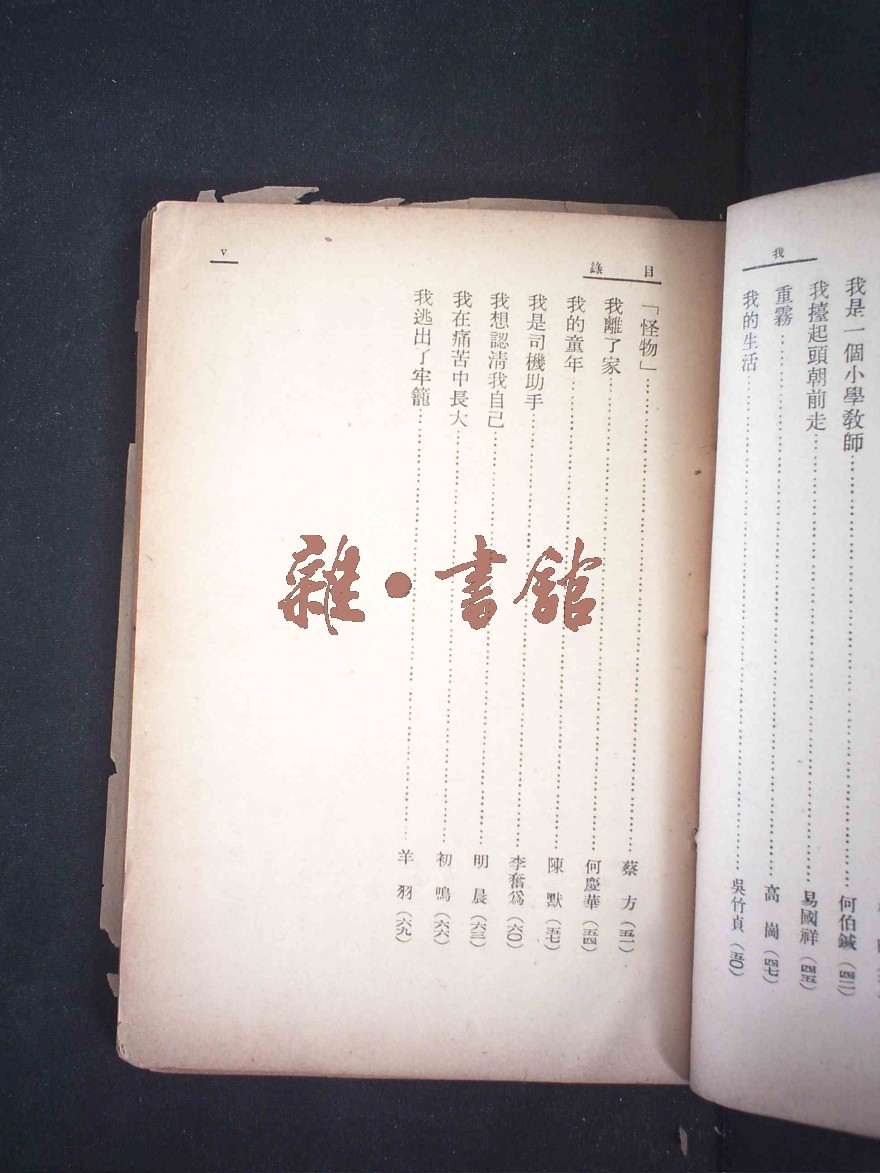 我
我是一個小學教師………何伯鋮（四二）
我擡起頭朝前走………易國祥（四五）
重霧………高崗（四七）
我的生活………吳竹貞（五〇）
目錄
V
「怪物」………蔡方（五一）
我離了家………何慶華（五四）
我的童年………陳默（五七）
我是司機助手………李奮爲（六〇）
我想認淸我自己………明晨（六三）
我在痛苦中長大………初鳴（六六）
我逃出了牢籠………羊羽（六九）
雜·書館